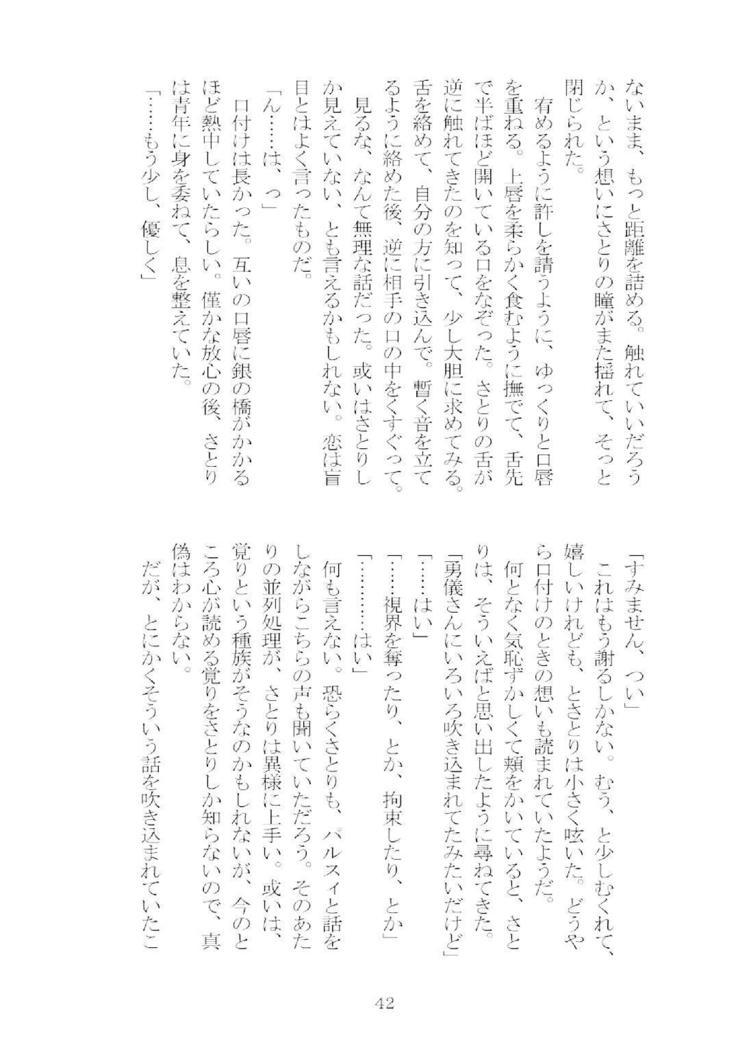 ないまま、もっと距離を詰める。触れていいだろう
か、という想いにさとりの瞳がまた揺れて、そっと
閉じられた。
　宥めるように許しを請うように、ゆっくりと口唇
を重ねる。上唇を柔らかく食むように撫でて、舌先
で半ばほど開いている口をなぞった。さとりの舌が
逆に触れてきたのを知って、少し大胆に求めてみる。
舌を絡めて、自分の方に引き込んで。暫く音を立て
るように絡めた後、逆に相手の口の中をくすぐって。
　見るな、なんて無理な話だった。或いはさとりし
か見えていない、とも言えるかもしれない。恋は盲
目とはよく言ったものだ。
「ん……は、っ」
　口付けは長かった。互いの口唇に銀の橋がかかる
ほど熱中していたらしい。僅かな放心の後、さとり
は青年に身を委ねて、息を整えていた。
「……もう少し、優しく」
「すみません、つい」
　これはもう謝るしかない。むう、と少しむくれて、
嬉しいけれども、とさとりは小さく呟いた。どうや
ら口付けのときの想いも読まれていたようだ。
　何となく気恥ずかしくて頬をかいていると、さと
りは、そういえばと思い出したように尋ねてきた。
「勇儀さんにいろいろ吹き込まれてたみたいだけど」
「……はい」
「……視界を奪ったり、とか、拘束したり、とか」
「…………はい」
　何も言えない。恐らくさとりも、パルスィと話を
しながらこちらの声も聞いていただろう。そのあた
りの並列処理が、さとりは異様に上手い。或いは、
覚りという種族がそうなのかもしれないが、今のと
ころ心が読める覚りをさとりしか知らないので、真
偽はわからない。
　だが、とにかくそういう話を吹き込まれていたこ
42